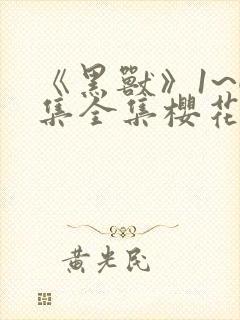 《黑獸》1~
集全集櫻花
黄光民